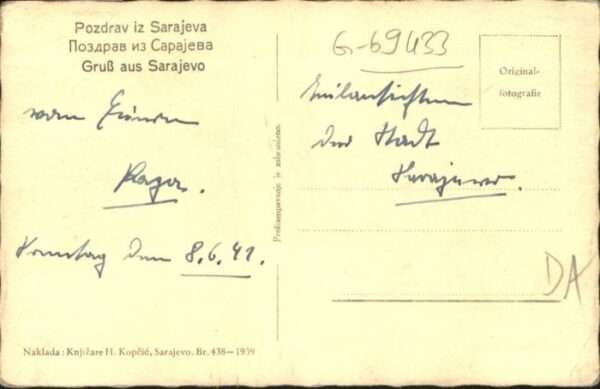 Pozdrav iz Sarajeva
Поздрав из Сарајева
Gruß aus Sarajevo
von
Sonntag den 8.6.41.
Naklada: Knjižare H. Kopčić, Sarajevo. Br. 438—1939
Preštampavanje je zabranjeno.
G-69433
Original-
fotografie
Teilansichten
der Stadt
Sarajewo.
DA